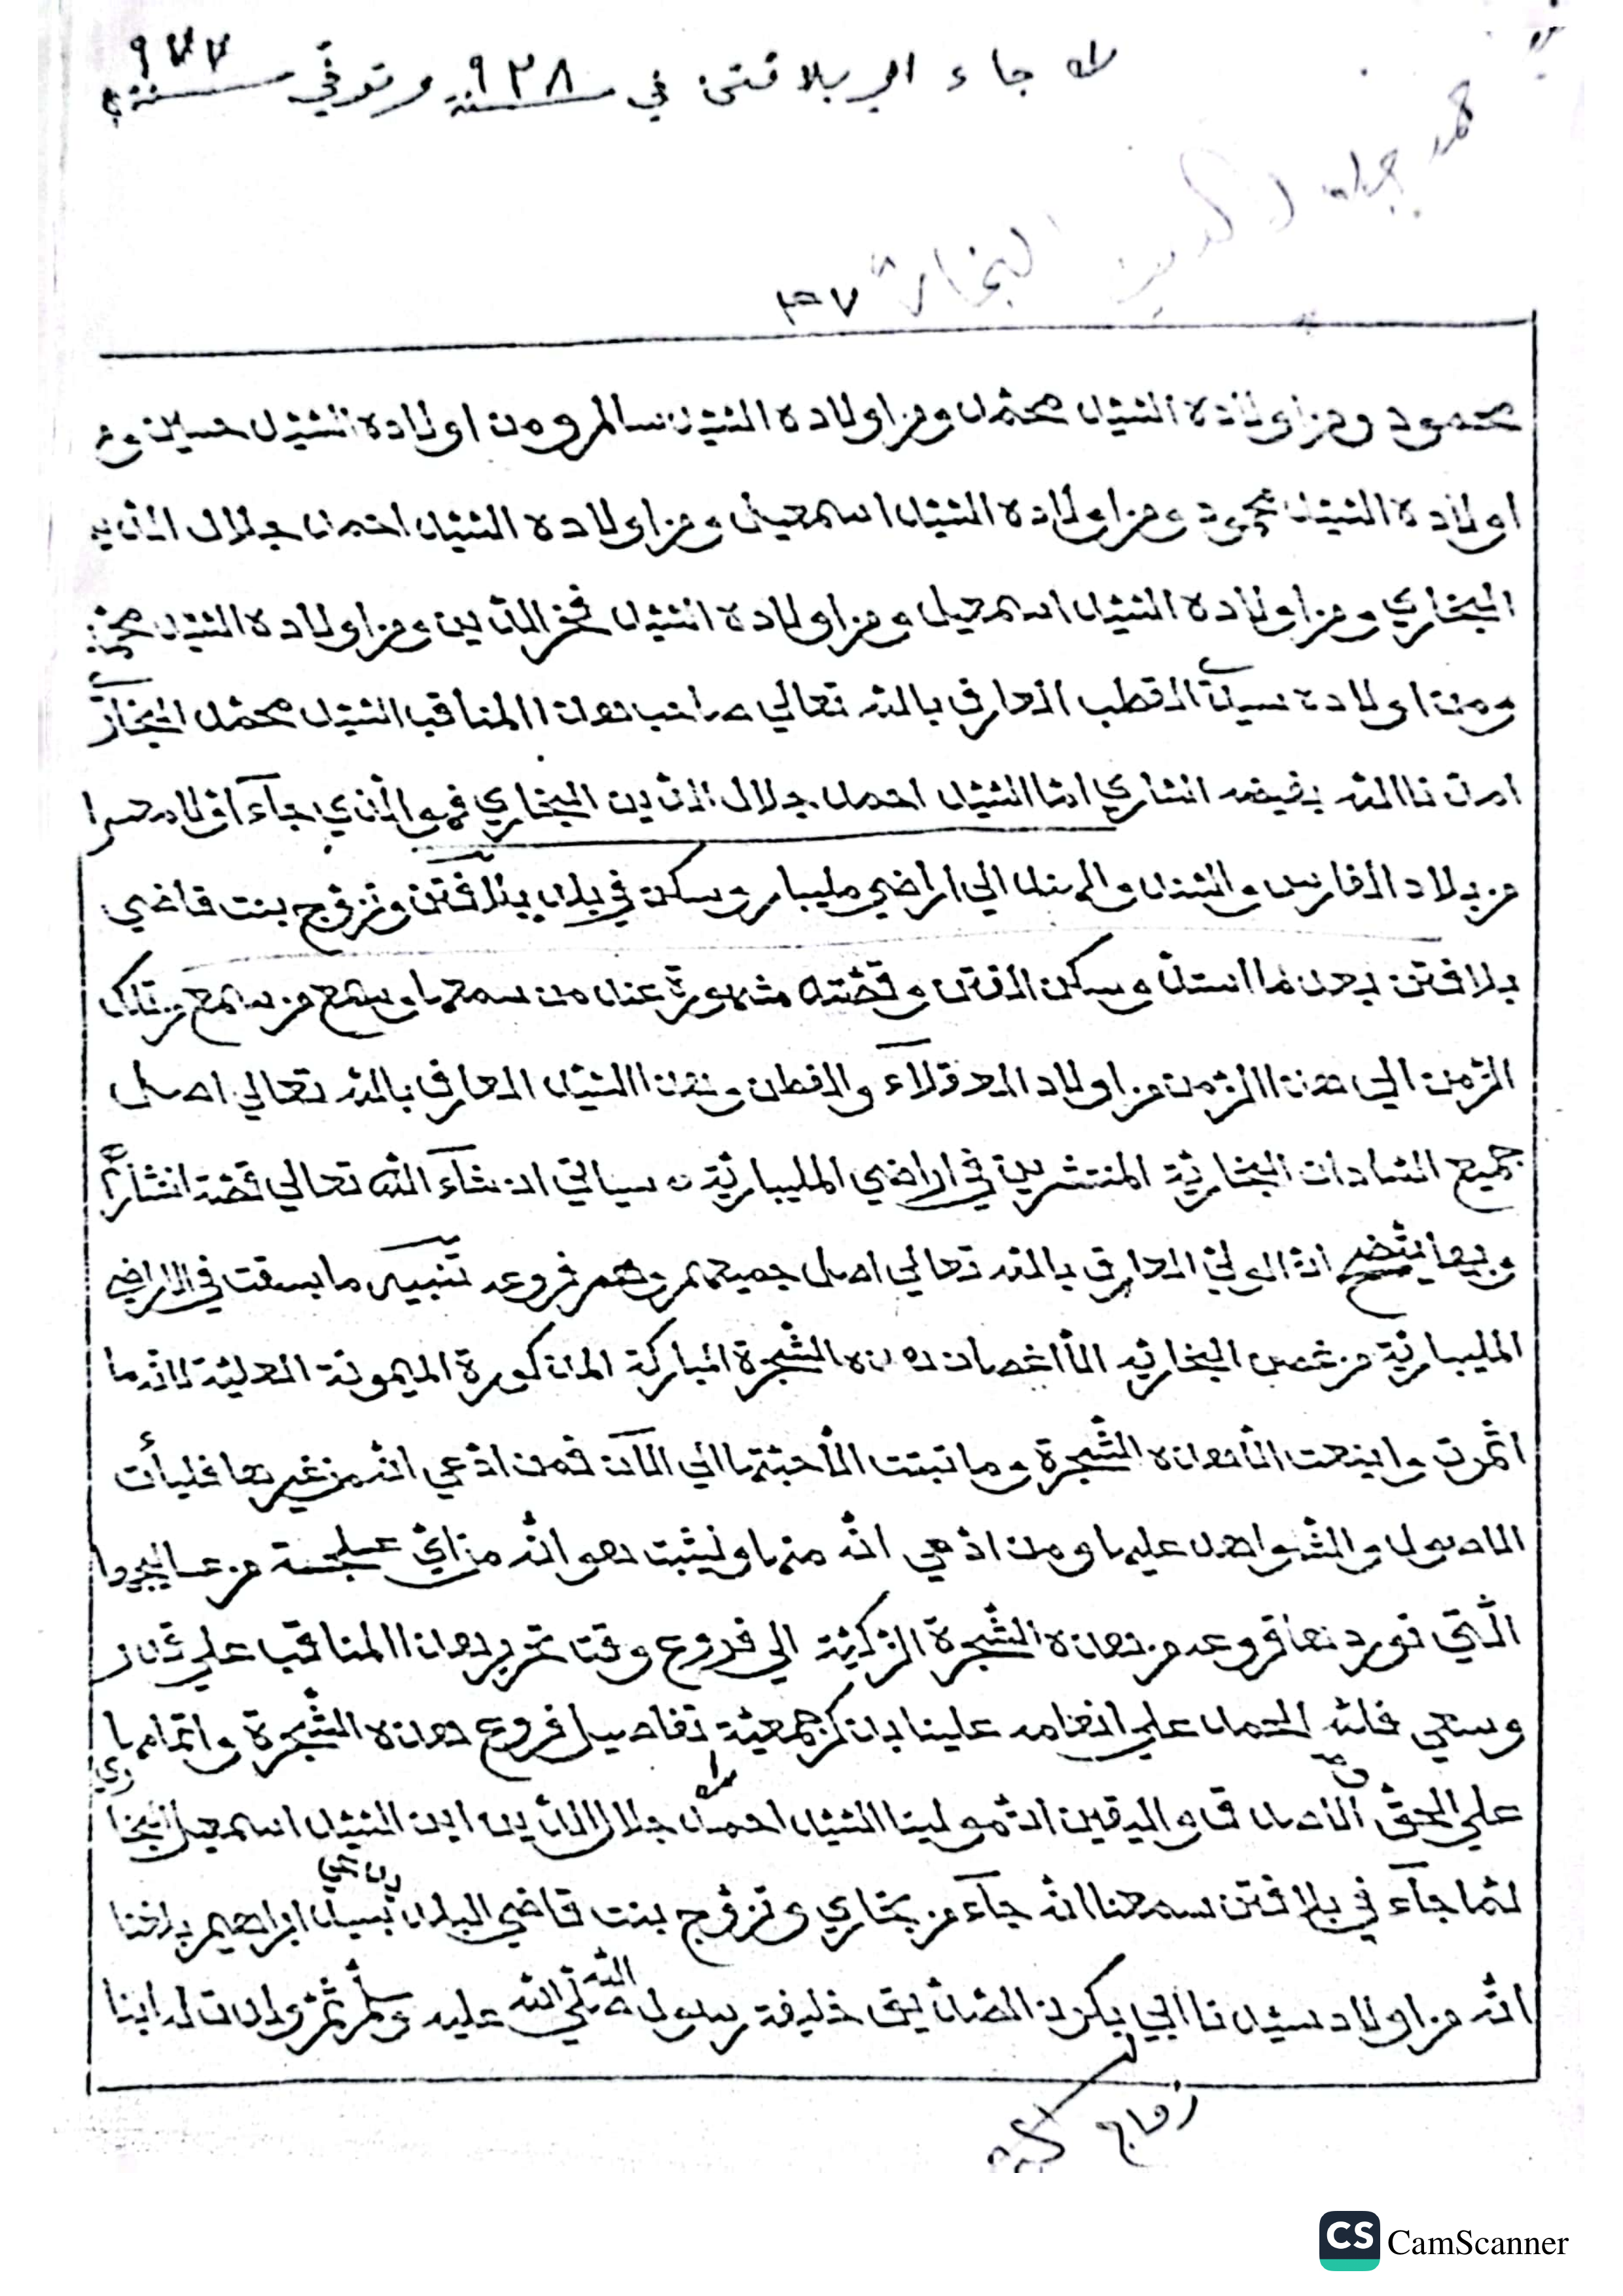 جاء الي بلافتن في سنة ٩٢٨ وتوفي سنة ٩٧٧
البخاري
محمود ومن اولاده السّيّد محمّد ومن اولاده السّيّد سالم ومن اولاده السّيّد حسين ومن
اولاده السّيّد محمود ومن اولاده السّيّد اسمعيل ومن اولاده السّيّد احمد جلال الدّين
البخاري ومن اولاده السّيّد اسمعيل ومن اولاده السّيّد فخر الدّين ومن اولاده السّيّد محمّد
ومن اولاده سيدنا القطب العارف بالله تعالي صاحب هذا المناقب السّيّد محمّد البخاري
امدنا الله بفيضه الساري امّا السّيّد احمد جلال الدّين البخاري فهو الّذي جاء اوّلا
من بلاد الفارس والسند والهند الي اراضي مليبار وسكن في بلد بلافتن وتزوّج بنت قاضي
بلافتن بعد ما وسكن الفتن وقصّته مشهورة عند من سمعها وسمع من سمع من تلك
الزّمن الي هذا الزّمن من اولاد العقلاء والفطن وهذا السّيّد العارف بالله تعالي اصل
جميع السّادات البخاريّة المنتشرين في اراضي المليباريّة سياتي ان شاء الله تعالي قصّة
وبها يتّضح انّ الوليّ العارف بالله تعالي اصل جميعهم وهم فروعه تنبيه ما بسقت في الاراضي
المليباريّة من غصن البخاريّه الّا اغصان هذه الشّجرة المباركة المذكورة الميمونة العليّة لانّه ما
اثمرت واينعت الّا هذه الشّجرة وما نبتت الّا حبّتها الي الآن فمن ادّعي انّه من غيرها فليأت
الاصول والشّواهد عليها ومن ادّعي انّه منها وليثبت هو انّه من ايّ
الّتي نورد ها فروعه من هذه الشّجرة الزّكيّة الي فروع وقت تحرير هذا المناقب علي قدر
وسعي فللّه الحمد علي انعامه علينا بذكر جمعيّة تفاصيل فروع هذه الشّجرة واتمامها
علي الحقّ الصدق واليقين انّ مولينا السّيّد احمد جلال الدّين ابن السّيّد اسمعيل البخاري
لمّا جاء في بلافتن سمعنا انّه جاء من بخاري وتزوّج بنت قاضي البلد سيد ابراهيم بلغنا
انّه من اولاد سيّدنا ابي بكرن الصّدّيق خليفة رسول الله صلّي الله عليه وسلّم ثمّ ولدت له ابنا
CS CamScanner